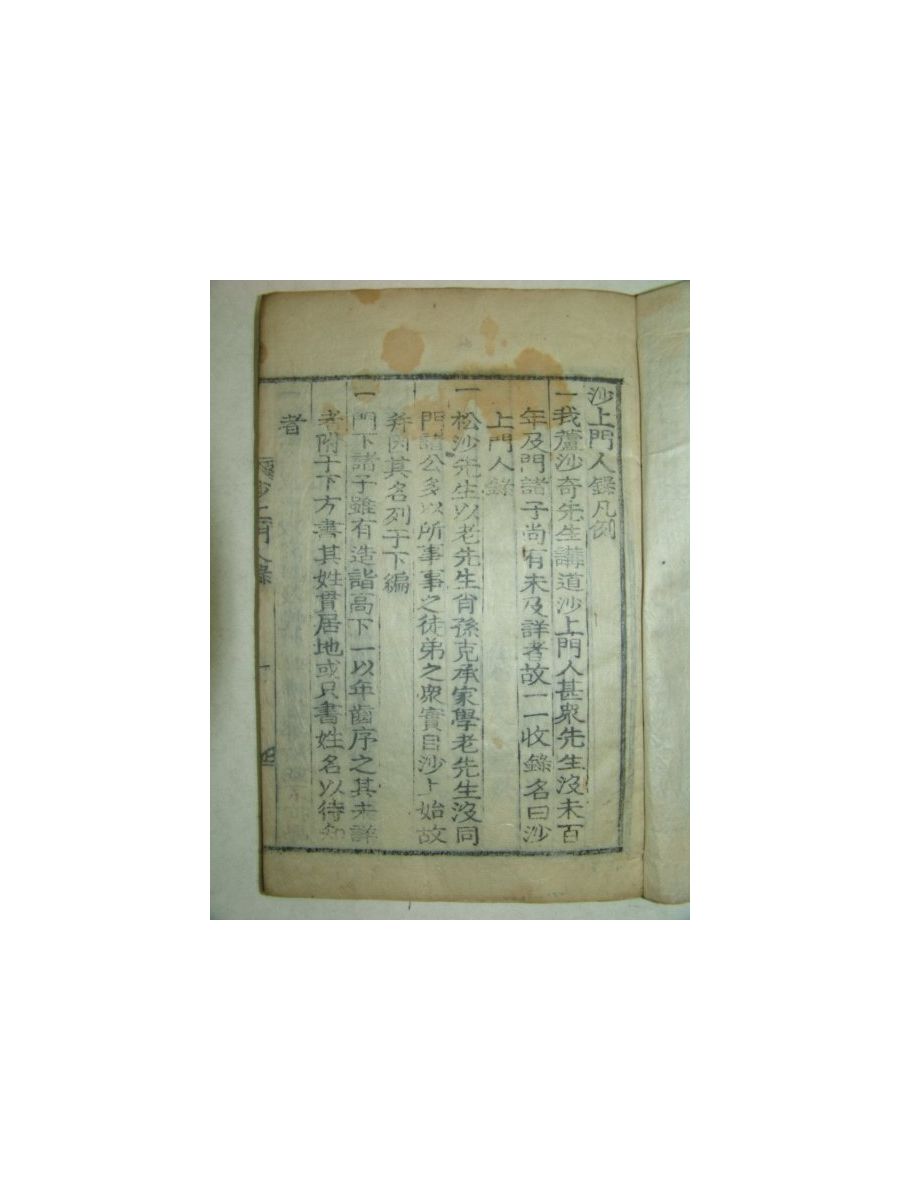 沙上門人錄凡例
一我蘆沙奇先生講道沙上門人甚衆先生沒未百
年及門諸子尙有未及詳者故一一收錄名曰沙
上門人錄
一松沙先生以老先生肖孫克承家學老先生沒同
門諸公多以所事事之徒弟之衆實自沙上始故
幷附其名列于下編
一門下諸子雖有造詣高下一以年齒序之其未詳
者附于下方書其姓貫居地或只書姓名以待知
者
沙上門人錄